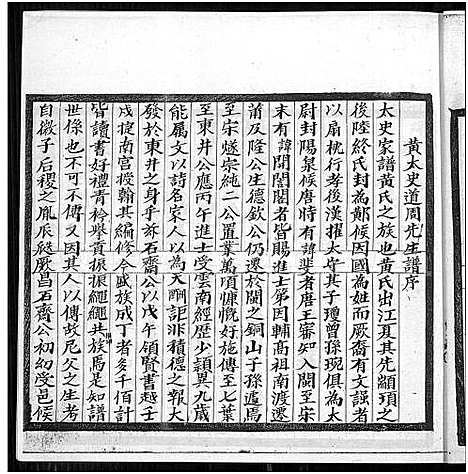 黃太史道周先生譜序
太史家譜黃氏之族也黃氏出江夏其先顓頊之
後陸終氏封為鄭侯因國為姓而厥裔有文疆者
以扇枕行孝後漢擢太守其子瓊曾孫琬俱為太
尉封陽泉侯唐時有諱斐者唐王審知入閩至宋
末有諱閶者皆賜進士第因輔高祖南渡遷
莆及隆公生德欽公仍遷於閩之銅山子孫遞焉
至宋燧宗純二公置業萬頃慷慨好施傳至七葉
至東井公應丙午進士受雲南經歷少穎異九歲
能属文以詩名家人以為天酬詎非積德之報大
發於東井之身乎訖石齋公以戊午領賢書越壬
戌捷南宮授翰其編修今戚族成丁者多千佰計
皆讀書好禮青衿舉貢振振繩繩共族焉是知譜
世係也不可不傳又因其人以傳故尼父之生考
自微子后稷之胤辰綏厥昌石齋公初幼受邑侯